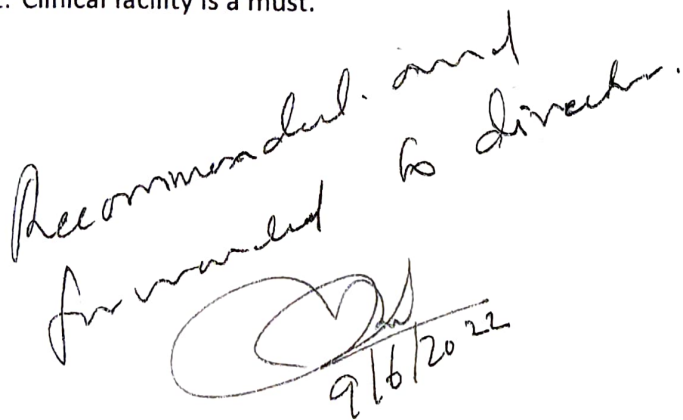 . Clinical facility is a must.
Recommended. and
forwarded to director.
9/6/2022